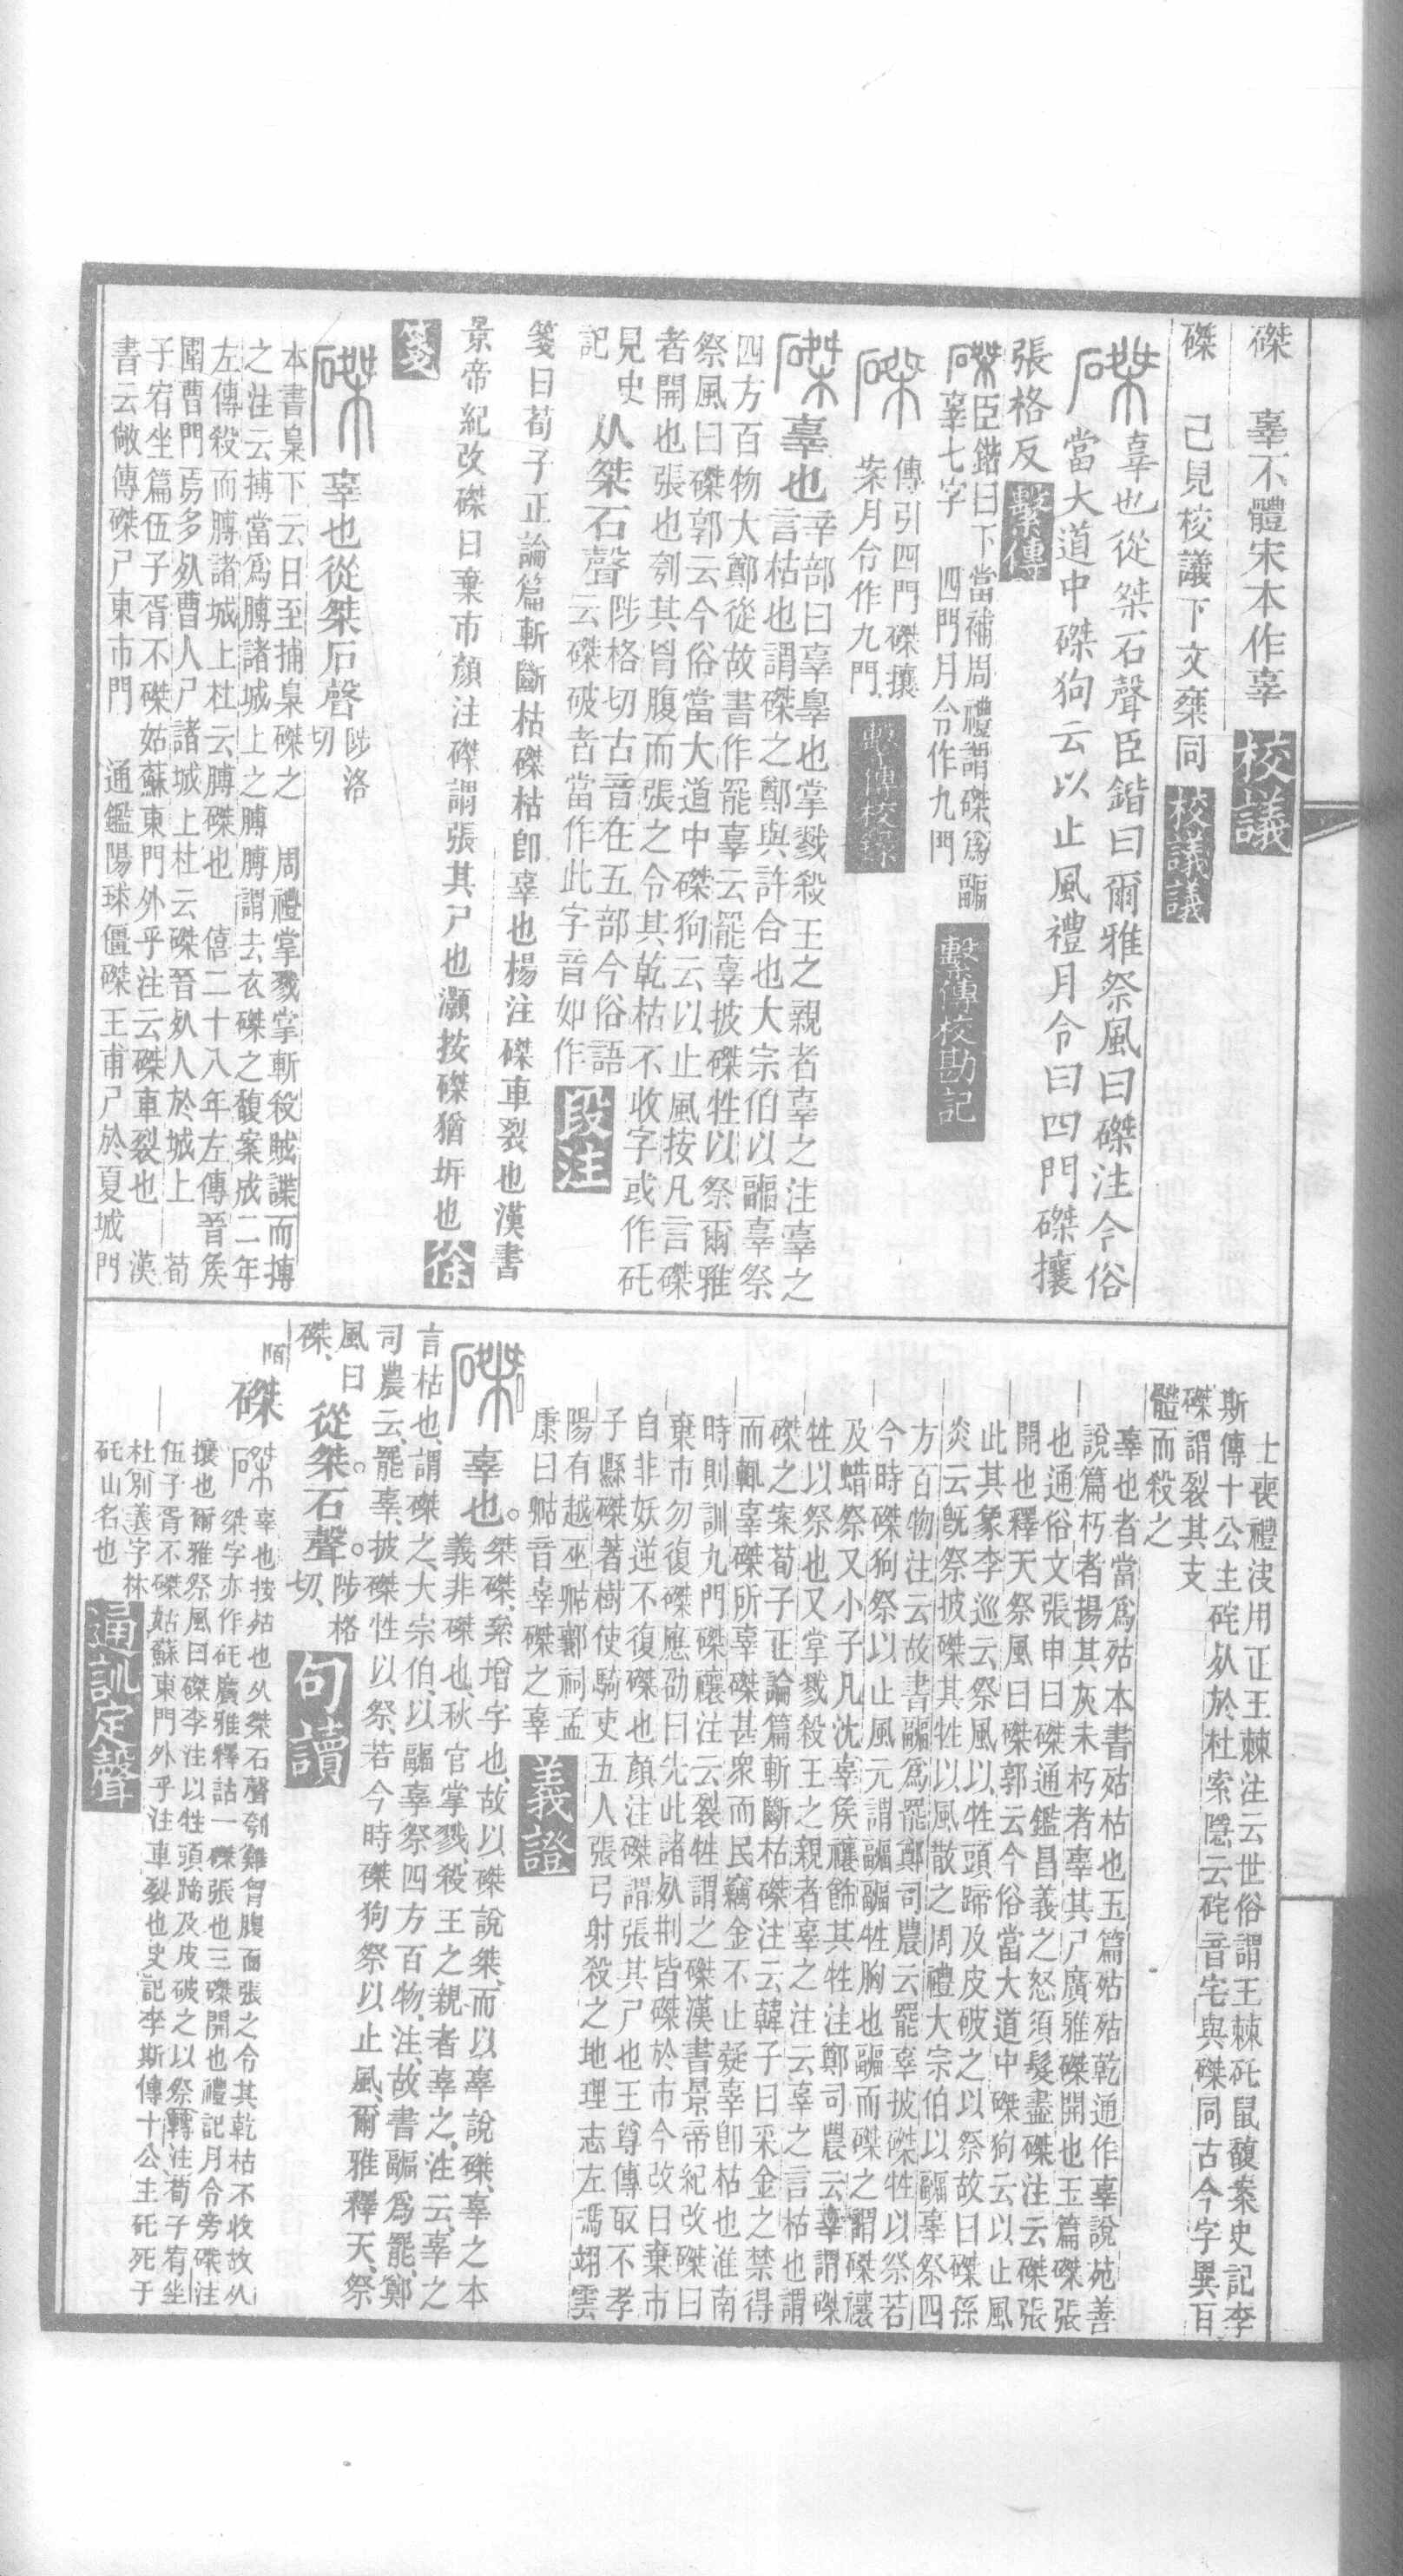 磔　辜不體宋本作辜　校議
磔　己見校議下文桀同　校議議
辜也從桀石聲臣鍇曰爾雅祭風曰磔注今俗
當大道中磔狗云以止風禮月令曰四門磔攘
張格反　繫傳
臣鍇曰下當補周禮謂磔爲疈
辜七字　四門月令作九門　繫傳校勘記
傳引四門磔攘
案月令作九門　繫傳校錄
辜也言枯也辛部曰辜辠也掌戮殺王之親者辜之注辜之
言枯也謂磔之鄭與許合也大宗伯以疈辜祭
四方百物大鄭從故書作罷辜云罷辜披磔牲以祭爾雅
祭風曰磔郭云今俗當大道中磔狗云以止風按凡言磔
者開也張也刳其胷腹而張之令其乾枯不收字或作矺
見史
記
从桀石聲陟格切古音在五部今俗語
云磔破者當作此字音如作　段注
箋曰荀子正論篇斬斷枯磔枯卽辜也楊注磔車裂也漢書
景帝紀改磔曰棄市顏注磔謂張其尸也灝按磔猶坼也　徐
箋
辜也從桀石聲陟洛
切
本書梟下云日至捕梟磔之　周禮掌戮掌斬殺賊諜而搏
之注云搏當爲膊諸城上之膊膊謂去衣磔之馥案成二年
左傳殺而膊諸城上杜云膊磔也　僖二十八年左傳晉矦
圍曹門焉多死曹人尸諸城上杜云磔晉死人於城上　荀
子宥坐篇伍子胥不磔姑蘇東門外乎注云磔車裂也　漢
書云敞傳磔尸東市門　通鑑陽球僵磔王甫尸於夏城門
士喪禮決用正王棘注云世俗謂王棘矺鼠馥案史記李
斯傳十公主矺死於杜索隱云矺音宅與磔同古今字異耳
磔謂裂其支
體而殺之
辜也者當爲㱠本書㱠枯也玉篇㱠㱠乾通作辜說苑善
說篇朽者揚其灰未朽者辜其尸廣雅磔開也玉篇磔張
也通俗文張申曰磔通鑑昌義之怒須髮盡磔注云磔張
開也釋天祭風曰磔郭云今俗當大道中磔狗云以止風
此其象李巡云祭風以牲頭蹄及皮破之以祭故曰磔孫
炎云旣祭披磔其牲以風散之周禮大宗伯以疈辜祭四
方百物注云故書疈爲罷鄭司農云罷辜披磔牲以祭若
今時磔狗祭以止風元謂疈疈牲胸也疈而磔之謂磔禳
及蜡祭又小子凡沈辜矦禳飾其牲注鄭司農云辜謂磔
牲以祭也又掌戮殺王之親者辜之注云辜之言枯也謂
磔之案荀子正論篇斬斷枯磔注云韓子曰采金之禁得
而輒辜磔所辜磔甚衆而民竊金不止疑辜卽枯也淮南
時則訓九門磔禳注云裂牲謂之磔漢書景帝紀改磔曰
棄市勿復磔應劭曰先此諸死刑皆磔於市今改曰棄市
自非妖逆不復磔也顏注磔謂張其尸也王尊傳取不孝
子縣磔著樹使騎吏五人張弓射殺之地理志左馮翊雲
陽有越巫䄍䣝祠孟
康曰䄍音辜磔之辜　義證
辜也。桀磔，桀增字也，故以磔說桀，而以辜說磔，辜之本
義非磔也，秋官掌戮，殺王之親者辜之，注云，辜之
言枯也，謂磔之，大宗伯，以疈辜祭四方百物，注，故書疈爲罷，鄭
司農云，罷辜，披磔牲以祭，若今時磔狗祭以止風，爾雅釋天，祭
風曰
磔，
從桀。石聲。陟格
切，　句讀
陌
磔　辜也按㱠也从桀石聲刳雞胷腹而張之令其乾枯不收故从
桀字亦作矺廣雅釋詁一磔張也三磔開也禮記月令旁磔注
攘也爾雅祭風曰磔李注以牲頭蹄及皮破之以祭轉注荀子宥坐
伍子胥不磔姑蘇東門外乎注車裂也史記李斯傳十公主矺死于
杜別義字林
矺山名也　通訓定聲